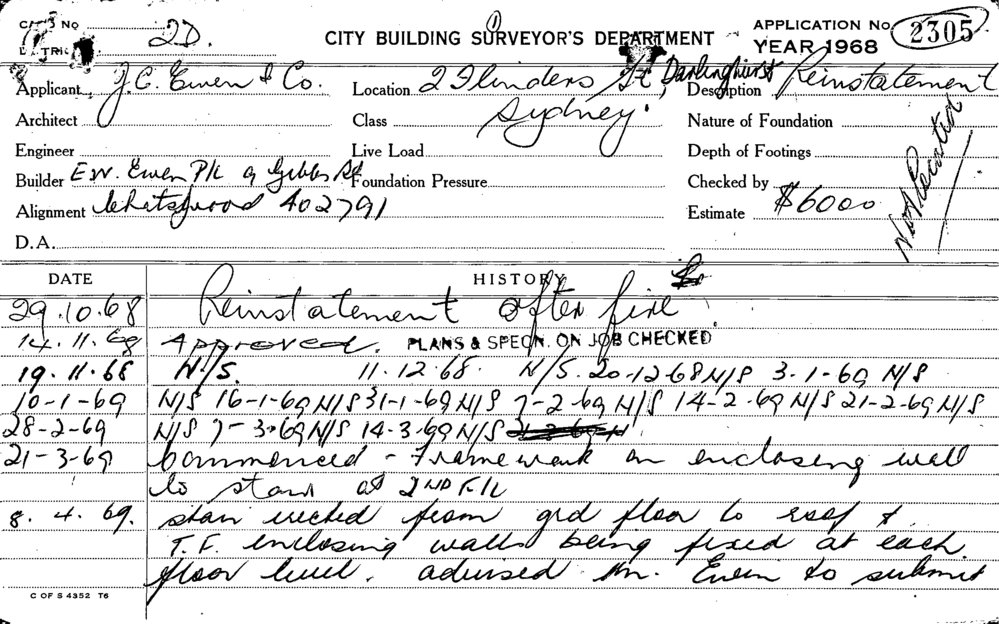 CARD No 2D.
DISTRICT
CITY BUILDING SURVEYOR'S DEPARTMENT
APPLICATION No. 2305
YEAR 1968
Applicant J.C. Ewen & Co.
Location 2 Flinders St, Darlinghurst
Sydney.
Description Reinstatement
Architect
Class
Nature of Foundation
Engineer
Live Load
Depth of Footings
Builder E.W. Ewen P/L 9 Gibbs St
Foundation Pressure
Checked by
Alignment Chatswood 402791
Estimate $6000
D.A.
DATE HISTORY
29.10.68 Reinstatement after fire
14.11.68 Approved. PLANS & SPECN. ON JOB CHECKED
19.11.68 N/S. 11.12.68. N/S. 20-12-68 N/S 3-1-69 N/S
10-1-69 N/S 16-1-69 N/S 31-1-69 N/S 7-2-69 N/S 14-2-69 N/S 21-2-69 N/S
28-2-69 N/S 7-3-69 N/S 14-3-69 N/S
21-3-69 Commenced - Framework on enclosing wall
to stair at 2ND F/L
8.4.69. stair erected from grd floor to roof &
T.F. enclosing walls being fixed at each
floor level. advised Mr. Ewen to submit
C OF S 4352 T6